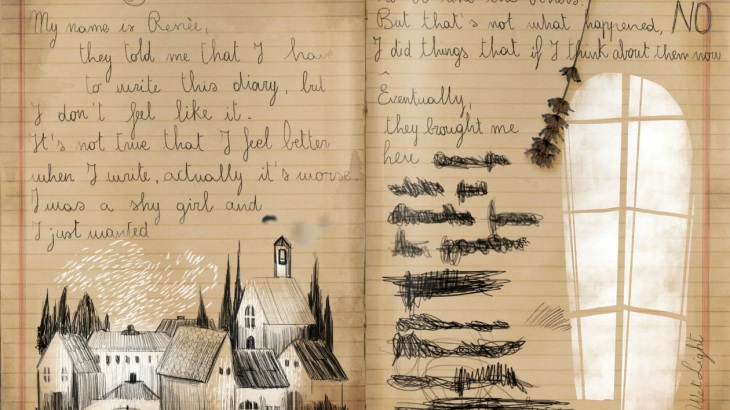 My name is Renèe,
they told me that I have
to write this diary, but
I don't feel like it.
It's not true that I feel better
when I write, actually it's worse.
I was a shy girl and
I just wanted
But that's not what happened, NO
I did things that if I think about them now
Eventually,
they brought me
here
Light